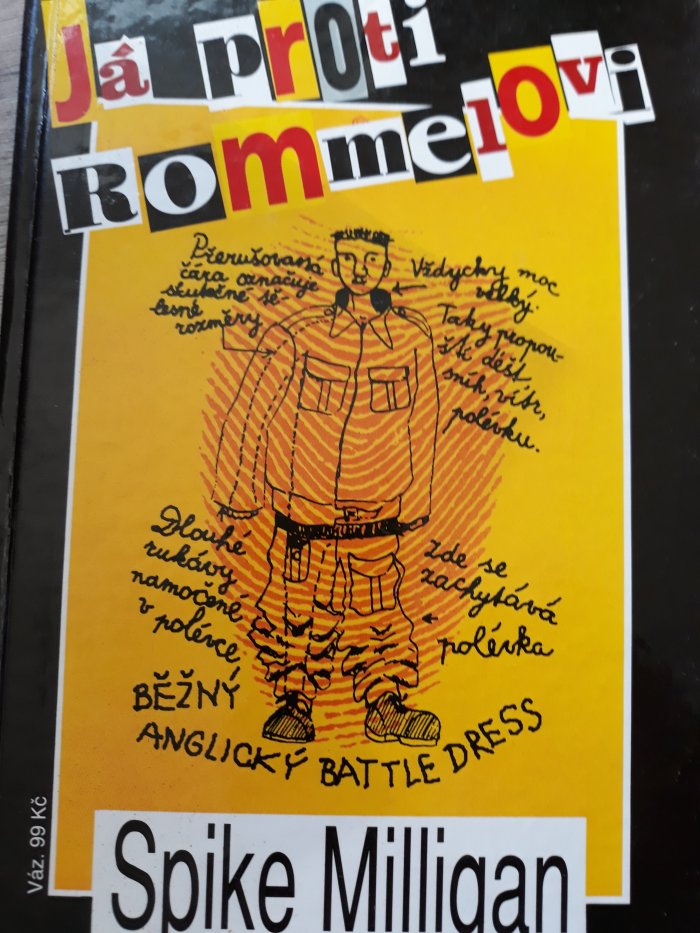 Já proti
Rommelovi
Přerušovaná
čára označuje
skutečné tě-
lesné
rozměry
Vždycky moc
velký.
Taky propou-
ští déšť
sníh, vítr,
polévku.
Dlouhé
rukávy
namočené
v polévce
Zde se
zachytává
polévka
BĚŽNÝ
ANGLICKÝ BATTLE DRESS
Váz. 99 Kč
Spike Milligan